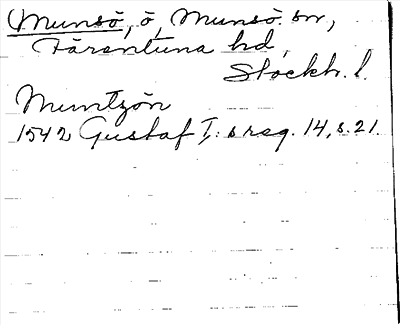 Munsö, ö, Munsö sn,
Färentuna hd,
Stockh. l.
Muntzön
1542 Gustaf I:s reg. 14, s. 21.